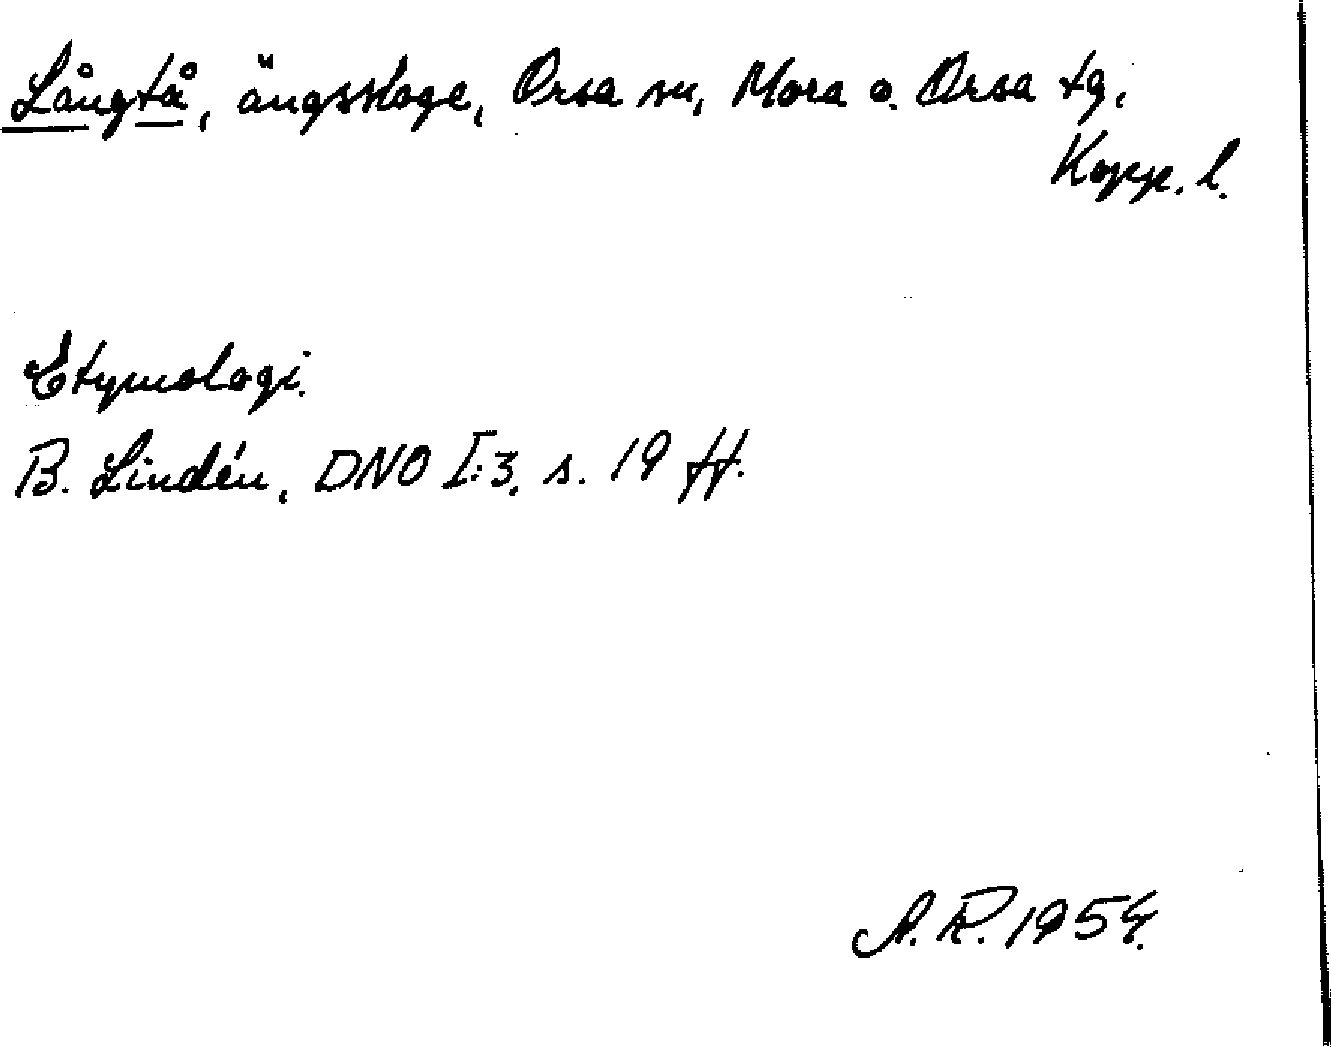 Långtå, ängsskoge, Orsa sn, Mora o. Orsa tg,
Kopp. l.
Etymologi.
B. Lindén, DNO I:3, s. 19 ff.
A. R. 1954.